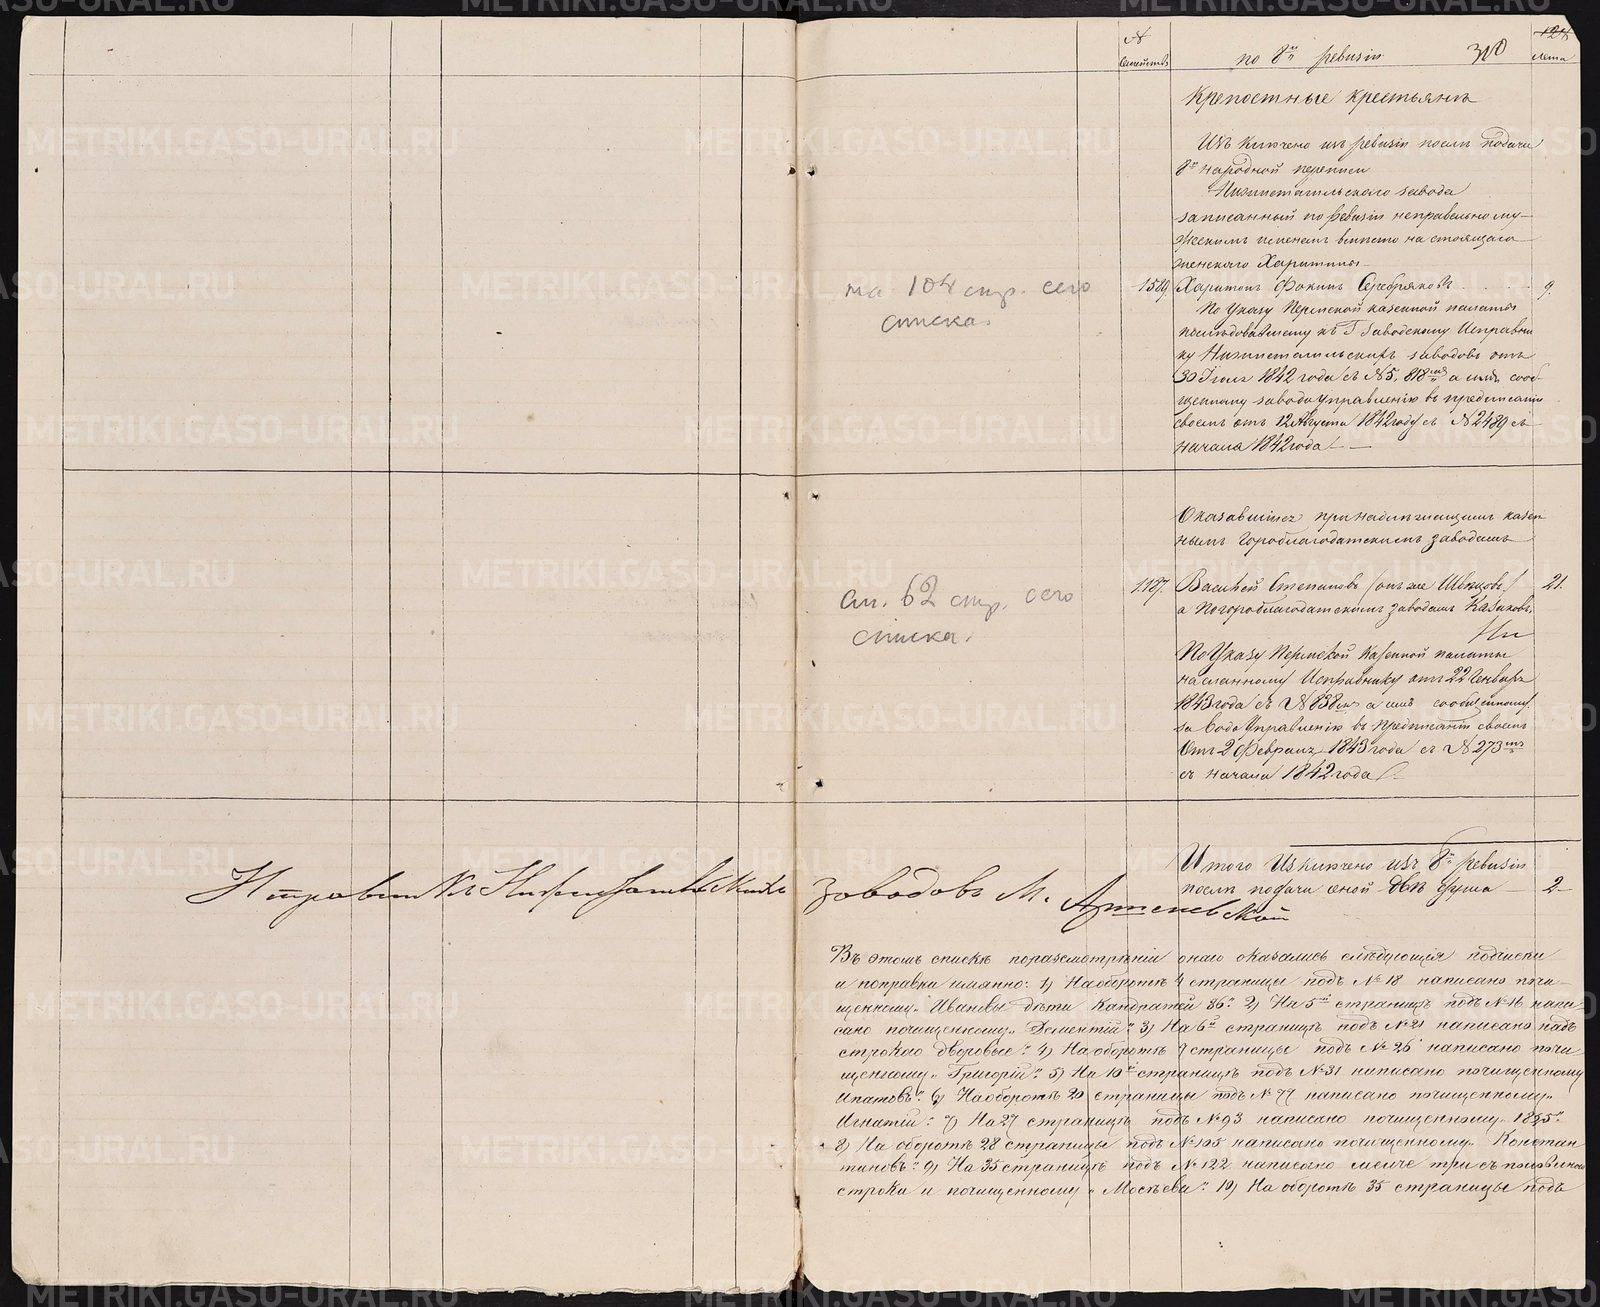 № семействъ
по 8й ревизіи
310
124
лета
Крепостные крестьяне
Изъ ключено изъ ревизіи посль подачи
8й народной переписи
Нижнетагильскаго завода
записанный по ревизіи неправельно му-
жескимъ именемъ вместо настоящаго
женскаго Харитины
на 104 стр. сего
списка.
1519 Харитонъ Фокинъ Серебряковъ 9.
По Указу Пермской казенной палаты
последовавшему къ Г. Заводскому Исправни
ку Нижнетагильскихъ заводовъ отъ
30 Іюля 1842 года съ №5,818мъ а имъ сооб-
щенному заводоуправленію въ предписаніи
своемъ отъ 12 Августа 1842 году съ №2489 съ
начала 1842 года
Оказавшіися принадлежащимъ казен
нымъ Гороблагодатскимъ заводамъ
ст. 62 стр. сего
списка.
1127. Василей Степановъ (онъ же Швецовъ) 21.
а по гороблагодатскимъ заводамъ Казаковъ.
По Указу Пермской Казенной палаты
насланному Исправнику отъ 22 Генваря
1843 года съ №838мъ а имъ сообщенному
заводоуправленію въ предписаніи своемъ
отъ 2 Февраля 1843 года съ №273мъ
съ начала 1842 года
Итого Изключено изъ 8й ревизіи
посль подачи оной две душа 2
Исправникъ Нижнетагильскихъ заводовъ М.
Въ этомъ спискѣ поразсмотрѣніи онаго оказались слѣдующія подписки
и поправки имянно: 1) На оборотѣ 4 страницы подъ №18 написано почи-
щенному „Ивановы дѣти Кандратей 36“. 2) На 5й страницѣ подъ №16 напи-
сано почищенному „Дементій“. 3) На 6й страницѣ подъ №21 написано надъ
строкою „Дворовые“. 4) На оборотѣ 9 страницы подъ №26 написано почи
щенному „Григорій“. 5) На 10й страницѣ подъ №31 написано почищенному
Ипатовъ“. 6) На оборотѣ 20 страницы подъ №77 написано почищенному „
Игнатій“. 7) На 27 страницѣ подъ №93 написано почищенному „1825“
8) На оборотѣ 28 страницы подъ №105 написано почищенному „Констан
тиновъ“. 9) На 35 страницѣ подъ №122 написано менѣе три съ половиною
строки и почищенному „Мосѣева“. 10) На оборотѣ 35 страницы подъ
METRIKI.GASO-URAL.RU